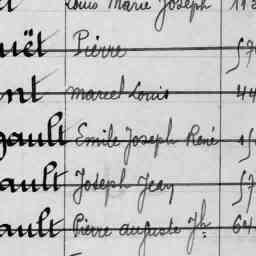 Louis Marie Joseph 113
uët Pierre 57
nt Marcel Louis 44
gault Emile Joseph René
ault Joseph Jean 57
ault Pierre Auguste Jh 64